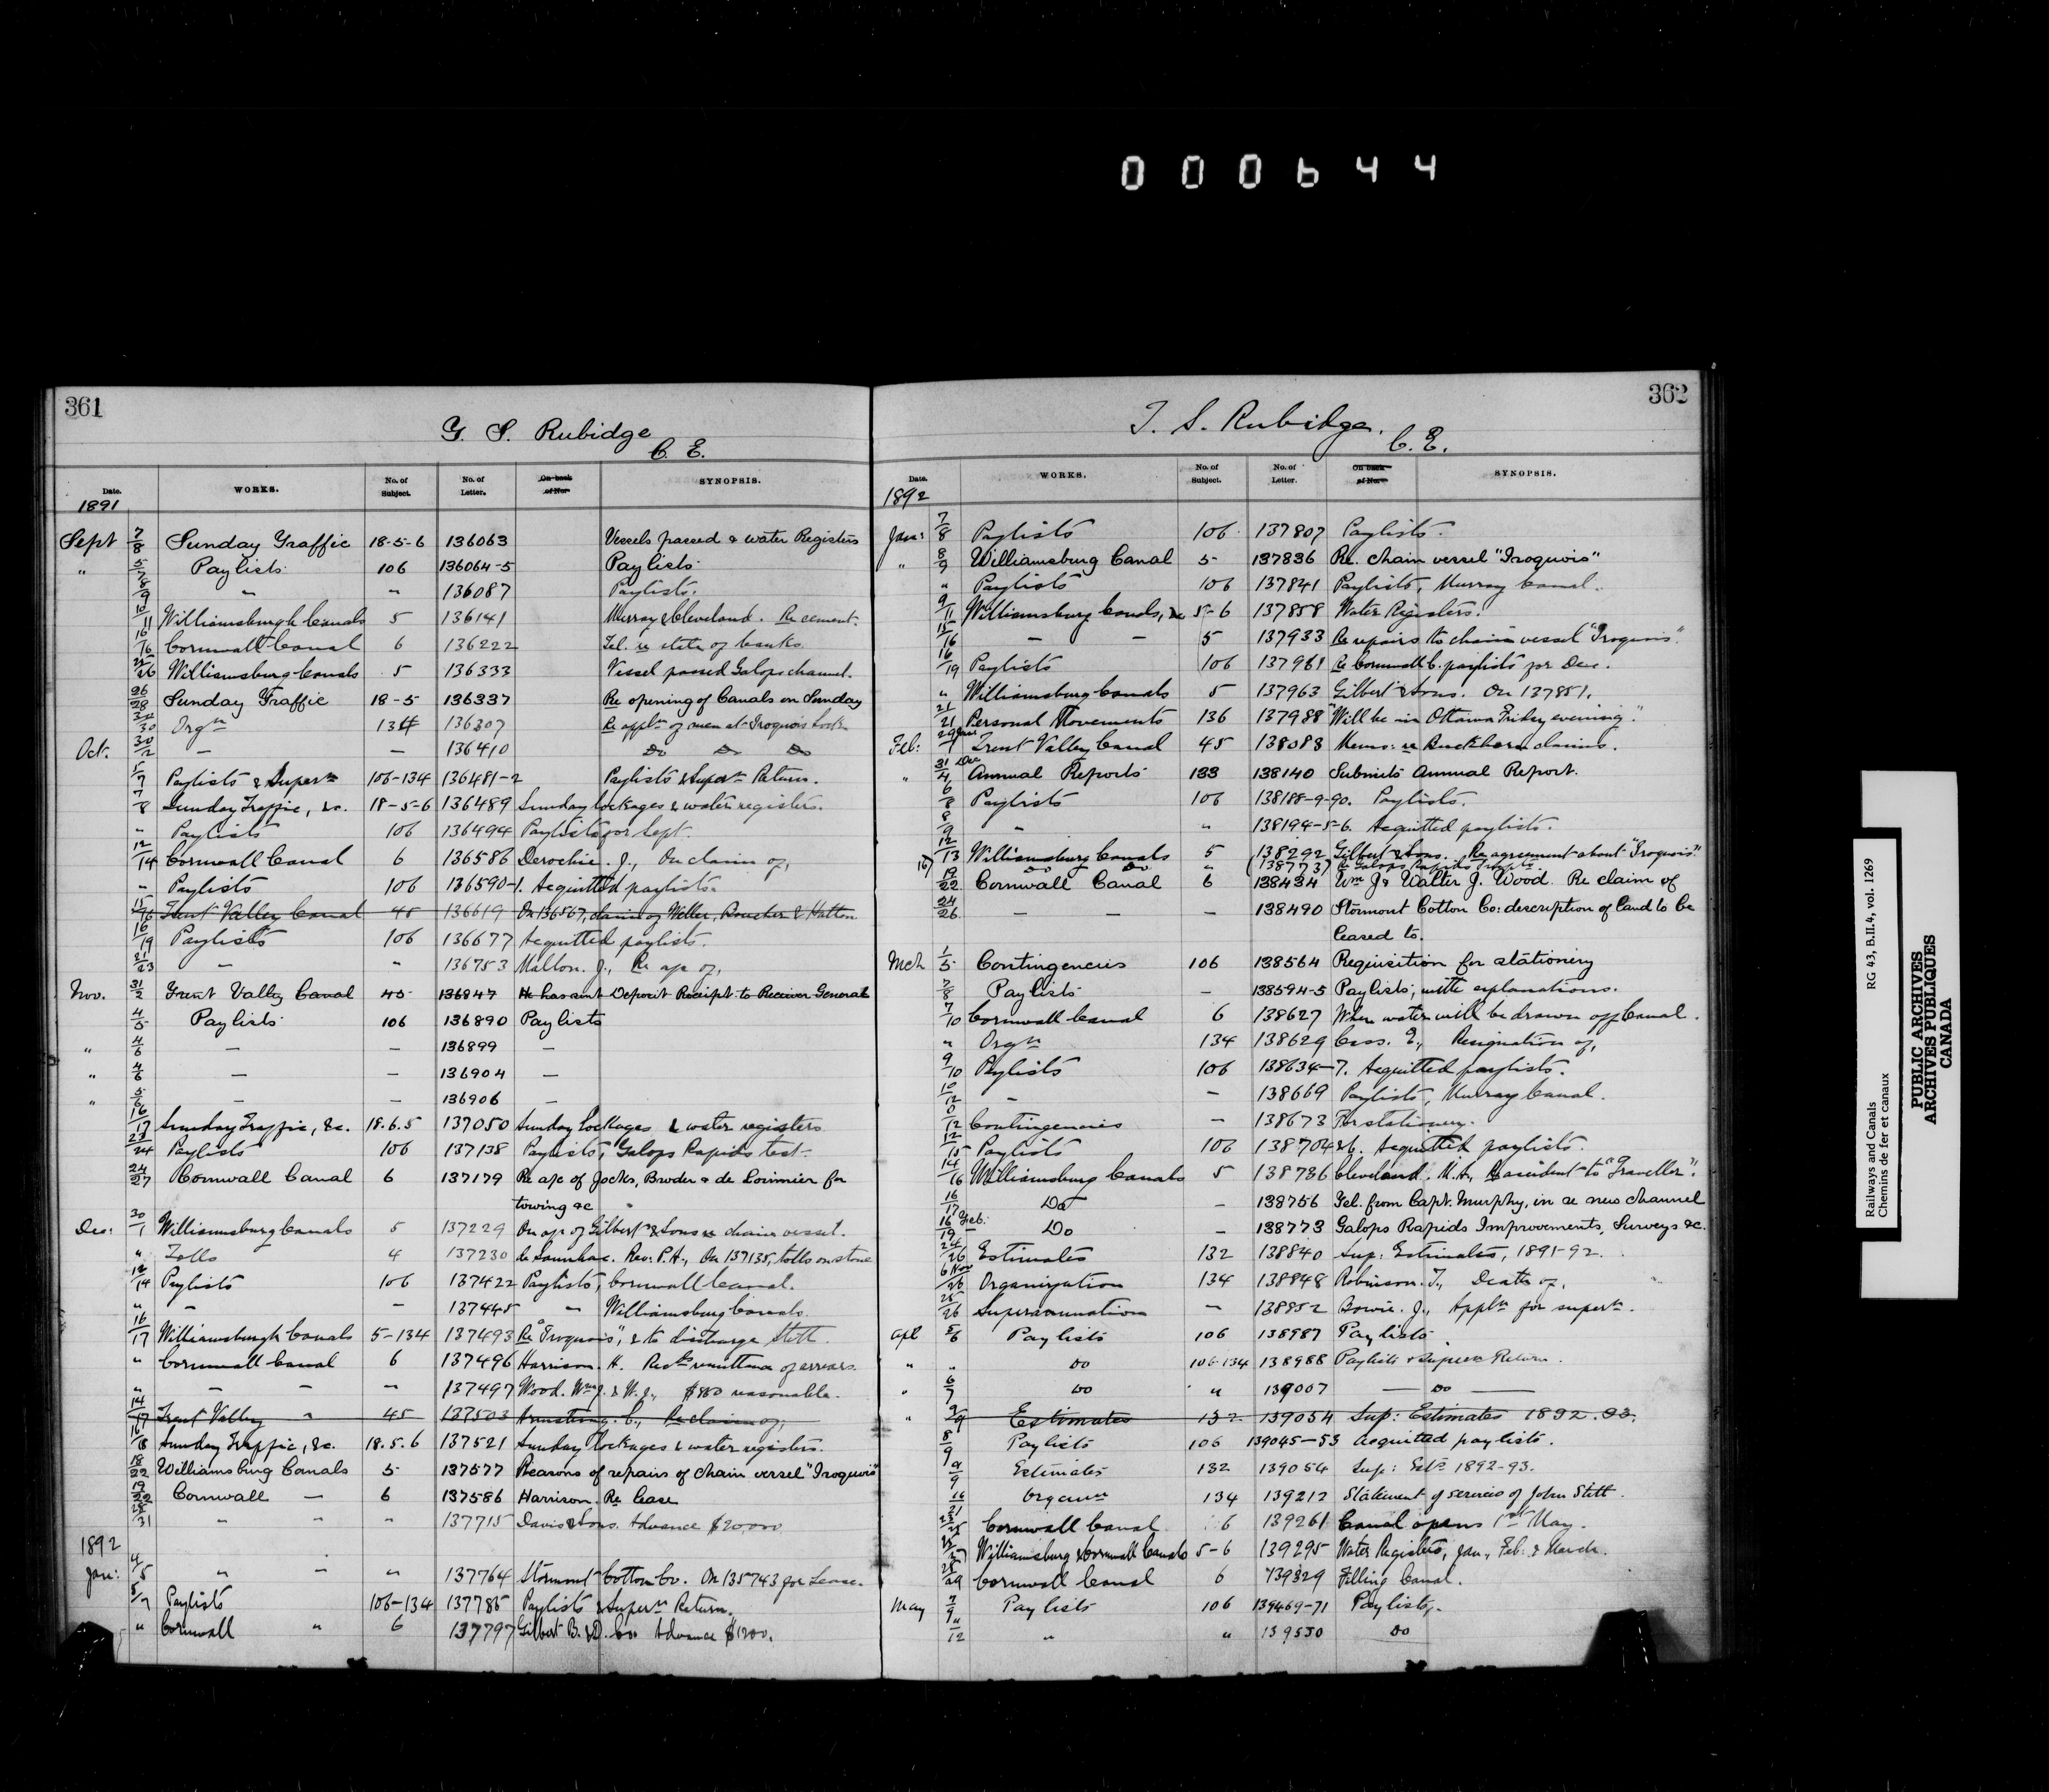 000644
361
G. S. Rubidge
C. E.
Date. WORKS. No. of Subject. No. of Letter. On back of No. SYNOPSIS.
1891
Sept 7/8 Sunday Traffic 18-5-6 136063 Vessels passed & water Registers
" 5/7 Paylists 106 136064-5 Paylists
8/9 " " 136087 Paylists.
10/11 Williamsburgh Canals 5 136141 Murray & Cleveland. Re cement.
16/16 Cornwall Canal 6 136222 Tel. re state of banks
25/26 Williamsburg Canals 5 136333 Vessel passed Galops channel.
26/28 Sunday Traffic 18-5 136337 Re opening of Canals on Sunday
/30 Orgn 134 136307 Re appln of men at Iroquois Lock
Oct. 30/2 — — 136410 Do Do Do
5/7 Paylists & Supern 106-134 136481-2 Paylists & Supern Return.
7/8 Sunday Traffic, &c. 18-5-6 136489 Sunday lockages & water registers.
" Paylists 106 136494 Paylists for Sept.
12/14 Cornwall Canal 6 136586 Derochie. J., On claim of,
" Paylists 106 136590-1. Acquitted paylists.
15/16 Trent Valley Canal 45 136619 On 136567, claim of Weller, Boucher & Hatton
16/19 Paylists 106 136677 Acquitted paylists.
21/23 — " 136753 Mallon. J., Re a/c of,
Nov. 31/2 Trent Valley Canal 45 136847 He has sent Deposit Receipt to Receiver General
4/5 Paylists 106 136890 Paylists
" 4/6 — — 136899 —
" 4/6 — — 136904 —
" 5/6 — — 136906 —
16/17 Sunday Traffic, &c. 18.6.5 137050 Sunday lockages & water registers
23/24 Paylists 106 137138 Paylists, "Galops Rapids test-
24/27 Cornwall Canal 6 137179 Re a/c of Jocks, Broder & de Lorimier for
towing &c
Dec: 30/1 Williamsburg Canals 5 137229 On a/c of Gilbert & Sons re chain vessel.
" Tolls 4 137230 Rev. P.A., On 137135, tolls on stone
12/14 Paylists 106 137422 Paylists, Cornwall Canal.
" — — 137445 " Williamsburg Canals.
16/17 Williamsburgh Canals 5-134 137493 Re "Iroquois", & to discharge Stitt.
" Cornwall Canal 6 137496 Harrison. H. remittance of arrears.
" — — — 137497 Wood. Wm J. & W. J., $850 reasonable.
14/17 Trent Valley " 45 137503 Armstrong. C., Re claim of,
16/18 Sunday Traffic, &c. 18.5.6 137521 Sunday lockages & water registers.
18/22 Williamsburg Canals 5 137577 Reasons of repairs of chain vessel "Iroquois"
19/22 Cornwall — 6 137586 Harrison. Re lease
28/31 " " " 137715 Davis & Sons. Advance $20,000
1892
Jan: 4/5 " " " 137764 Stormont Cotton Co. On 135743 for Lease.
5/7 Paylists 106-134 137785 Paylists & Supern Return.
" Cornwall " 6 137797 Gilbert B. & D. Co. Advance $1200.
362
T. S. Rubidge.
C. E.
Date. WORKS. No. of Subject. No. of Letter. On back of No. SYNOPSIS.
1892
Jan: 7/8 Paylists 106 137807 Paylists.
" 8/9 Williamsburg Canal 5 137836 Re. chain vessel "Iroquois"
" Paylists 106 137841 Paylists, Murray Canal.
9/11 Williamsburg Canals, &c 5-6 137858 Water Registers.
15/16 — — 5 137933 Re repairs to chain vessel "Iroquois".
16/19 Paylists 106 137961 Re Cornwall C. paylists for Dec.
" Williamsburg Canals 5 137963 Gilbert & Sons. On 137851.
21/21 Personal Movements 136 137988 "Will be in Ottawa Friday evening."
Feb: 29 Jan/1 Trent Valley Canal 45 138088 Memo: re Buckhorn claims.
" 31 Dec/4 Annual Reports 133 138140 Submits Annual Report.
6/8 Paylists 106 138188-9-90. Paylists.
8/9 " " 138194-5-6. Acquitted paylists.
12/13 Williamsburg Canals 5 138292 Gilbert & Sons. Re agreement about "Iroquois".
Do Do — (138773) Re Galops Rapids Impts
19/22 Cornwall Canal 6 138434 Wm J & Walter J. Wood. Re claim of
24/26 — — — 138490 Stormont Cotton Co: description of land to be
leased to.
Mch 1/5 Contingencies 106 138564 Requisition for stationery
7/8 Paylists — 138594-5 Paylists, with explanations.
7/10 Cornwall Canal 6 138627 When water will be drawn off Canal.
" Orgn 134 138629 Cass. E., Resignation of,
9/10 Paylists 106 138634-7. Acquitted paylists.
10/12 — — 138669 Paylists, Murray Canal.
/12 Contingencies — 138673 For stationery.
12/15 Paylists 106 138704 & 6. Acquitted paylists.
14/16 Williamsburg Canals 5 138736 Cleveland. M.A., Re accident to "Traveller".
16/17 Do — 138756 Tel. from Capt. Murphy, in re new channel
16 Feb./19 Do — 138773 Galops Rapids Improvements, Surveys &c.
24/26 Estimates 132 138840 Sup: Estimates, 1891-92.
6 Nov/26 Organization 134 138848 Robinson. T., Death of,
25/26 Superannuation — 138852 Bowie. J., Appln for supern.
Apl 5/6 Paylists 106 138987 Paylists
" " Do 106-134 138988 Paylists & Supern Return.
" 6/7 Do " 139007 — Do —
" 9/9 Estimates 132 139054 Sup: Estimates 1892.93.
8/9 Paylists 106 139045-53 Acquitted paylists.
9/9 Estimates 132 139054 Sup: Ests 1892-93.
16/21 Organn 134 139212 Statement of services of John Stitt.
/25 Cornwall Canal 6 139261 Canal opens 1st May.
Williamsburg & Cornwall Canals 5-6 139295 Water Registers, Jan., Feb. & March.
28/29 Cornwall Canal 6 139329 Filling Canal.
May 7/9 Paylists 106 139469-71 Paylists.
"/12 " " 139530 Do
Railways and Canals RG 43, B.II.4, vol. 1269
Chemins de fer et canaux
PUBLIC ARCHIVES
ARCHIVES PUBLIQUES
CANADA